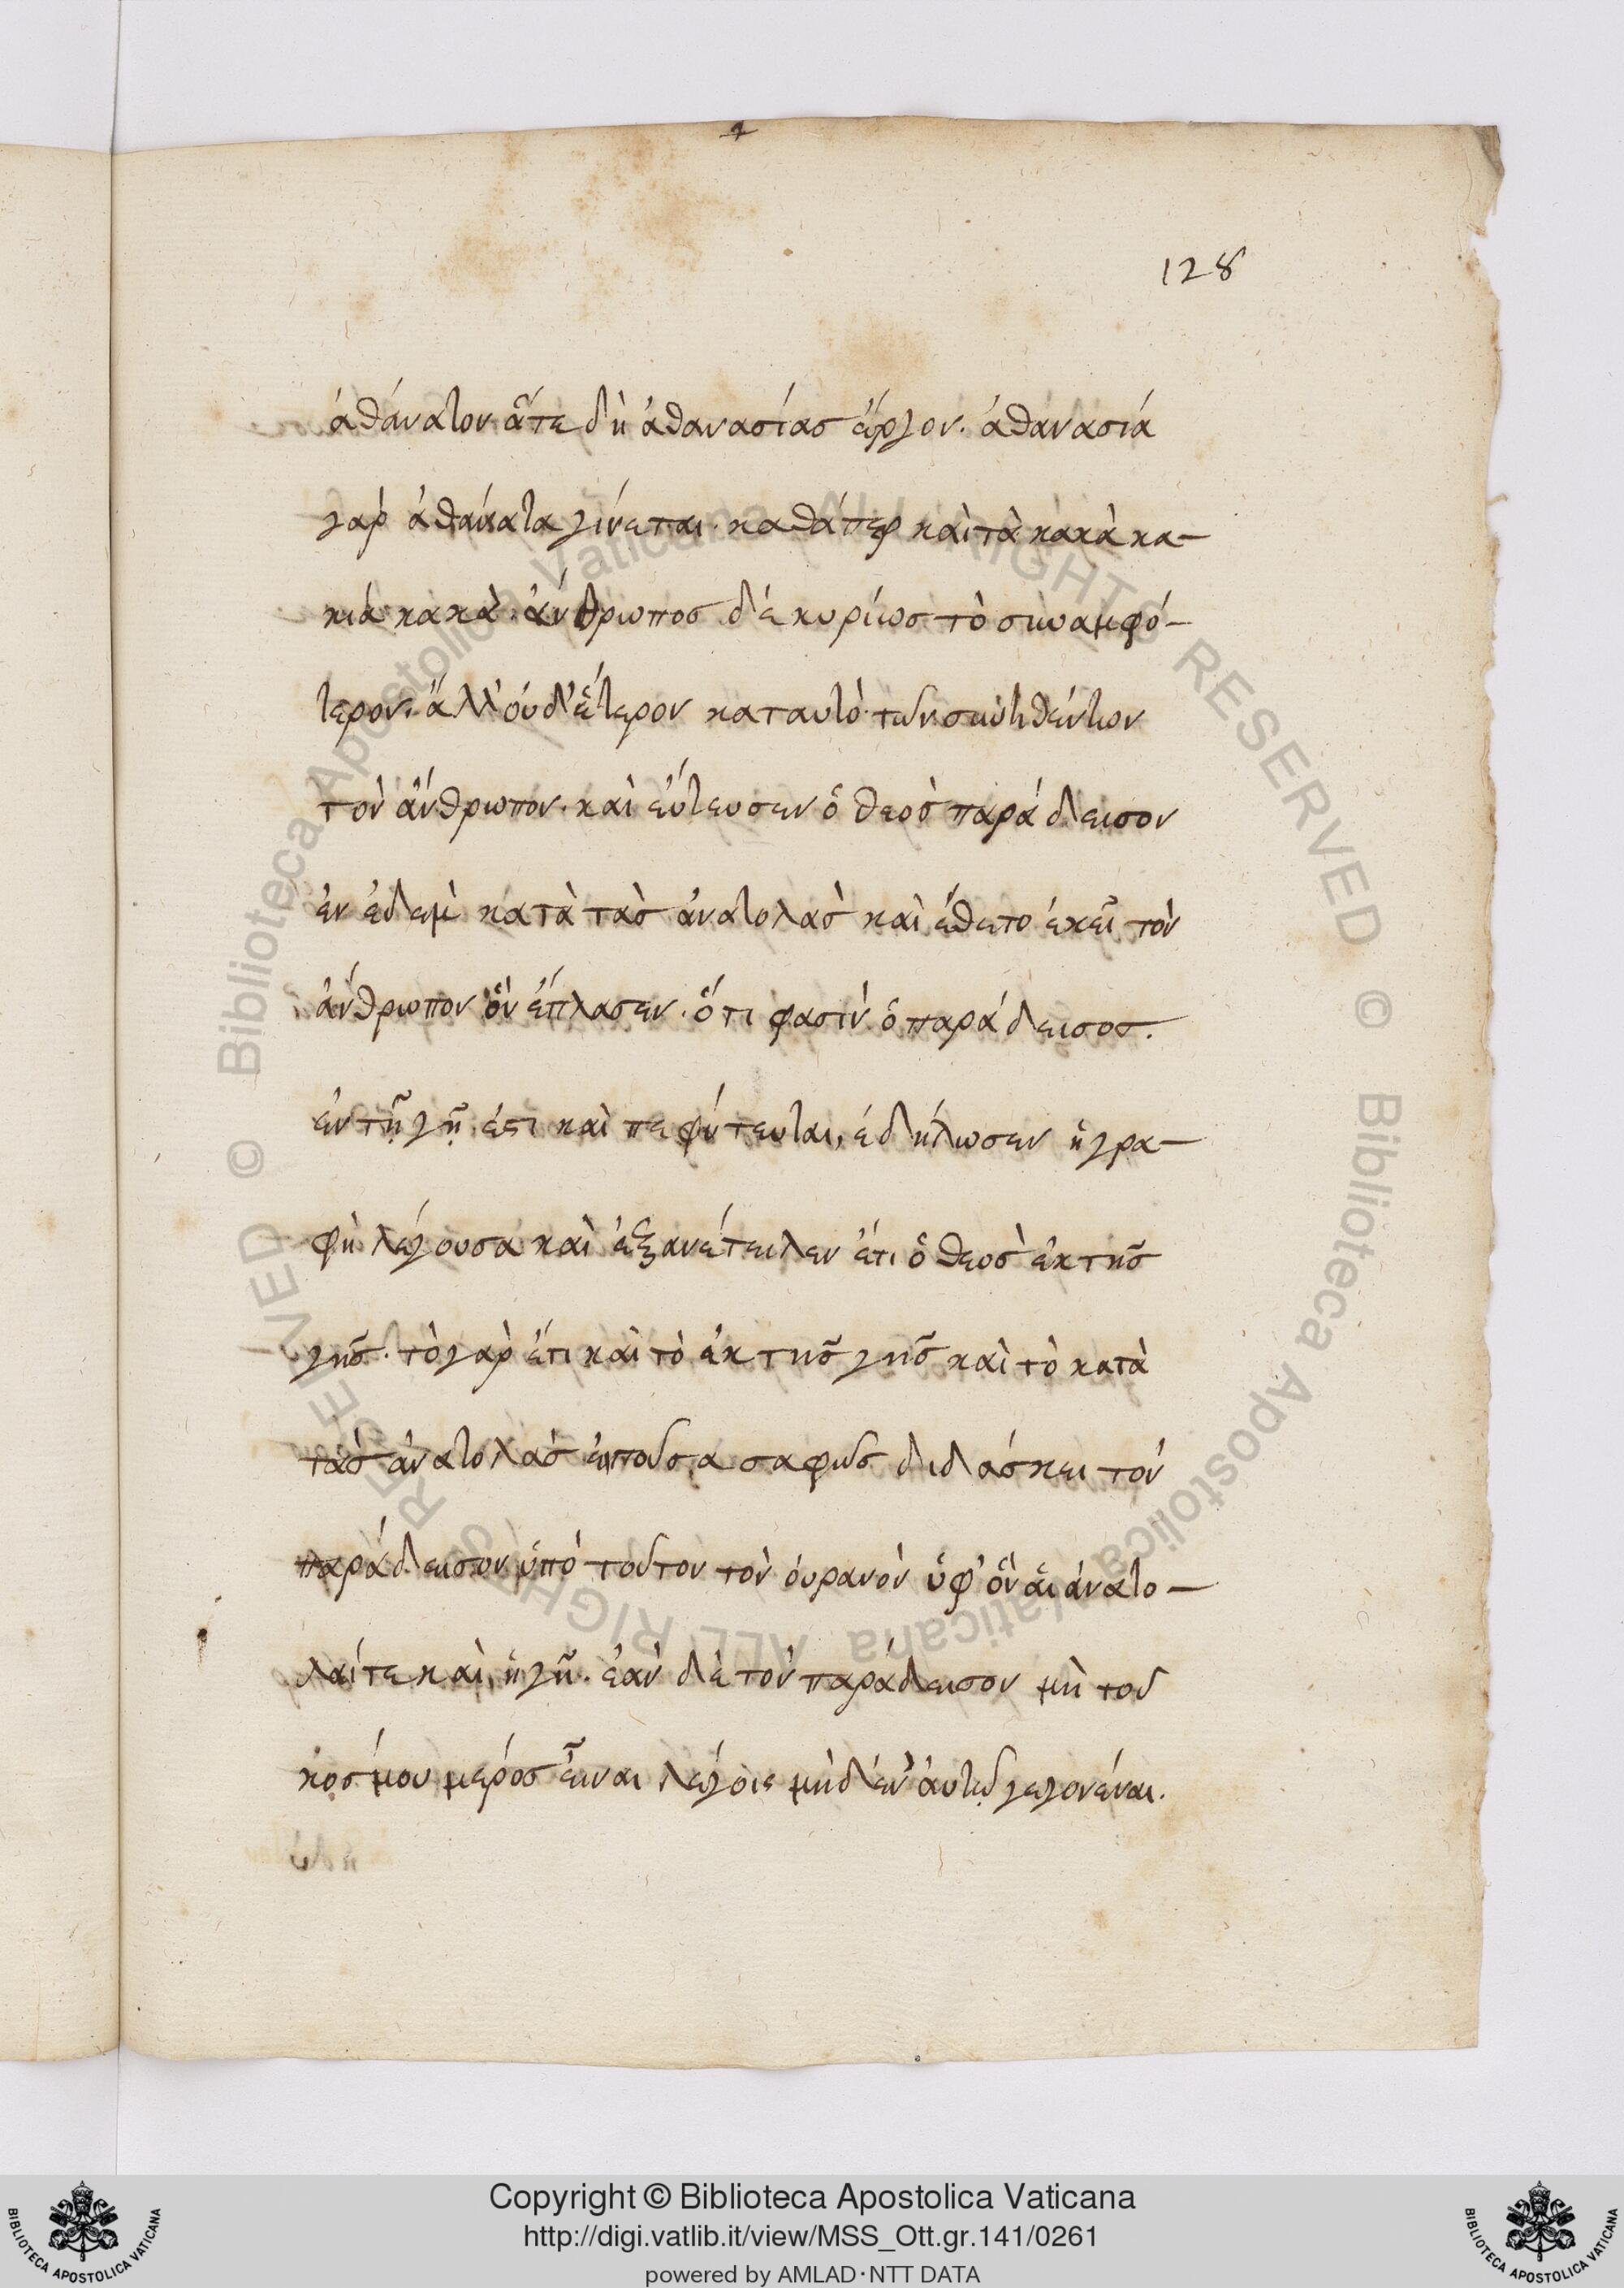 128
ἀθάνατον ἅτε δὴ ἀθανασίας ἔργον. ἀθανασία
γὰρ ἀθάνατα γίνεται. καθάπερ καὶ τὰ κακὰ κα-
κιά κακά. ἄνθρωπος δὲ κυρίως τὸ συναμφό-
τερον. ἀλλ' οὐδ' ἕτερον καταυτὸ τῶν συντιθέντων
τὸν ἄνθρωπον. καὶ εὐτευσεν ὁ θεὸς παράδεισον
ἐν ἐδεμὶ κατὰ τὰς ἀνατολὰς καὶ ἔθετο ἐκεῖ τὸν
ἄνθρωπον ὃν ἔπλασεν. ὅτι φασὶν ὁ παράδεισος.
ἐν τῇ γῇ ἐςι καὶ πεφύτευται, ἐδήλωσεν ἡ γρα-
φὴ λέγουσα καὶ ἐξανέτειλεν ἔτι ὁ θεὸς ἐκ τῆς
γῆς. τὸ γὰρ ἔτι καὶ τὸ ἐκ τῆς γῆς καὶ τὸ κατὰ
τὰς ἀνατολὰς εἰποῦσα σαφῶς διδάσκει τὸν
παράδεισον ὑπὸ τοῦτον τὸν οὐρανὸν ὑφ' ὃν αἱ ἀνατο-
λαί τε καὶ ἡ γῆ. ἐὰν δὲ τὸν παράδεισον μὴ τοῦ
κόσμου μέρος εἶναι λέγοις μὴδ' ἐν αὐτῷ γεγονέναι.
Copyright © Biblioteca Apostolica Vaticana
http://digi.vatlib.it/view/MSS_Ott.gr.141/0261
powered by AMLAD·NTT DATA
BIBLIOTECA APOSTOLICA VATICANA
BIBLIOTECA APOSTOLICA VATICANA
© Biblioteca Apostolica Vaticana ALL RIGHTS RESERVED © Biblioteca Apostolica Vaticana ALL RIGHTS RESERVED